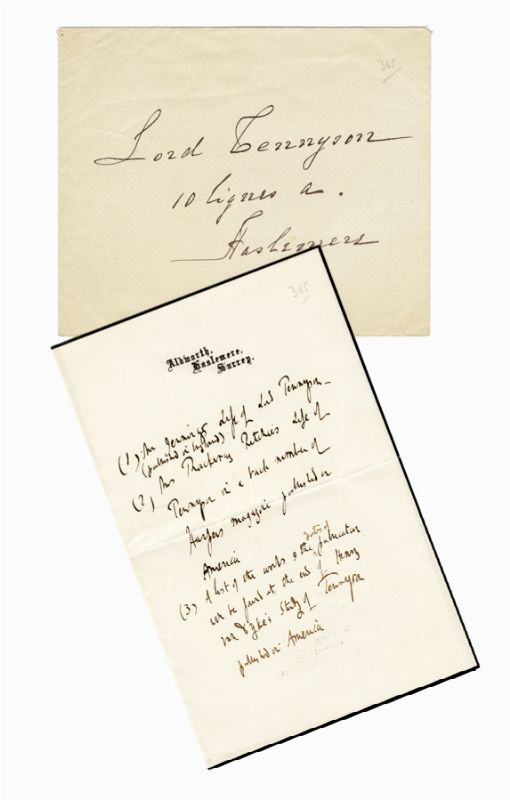 365
Lord Tennyson
10 lignes a.
Haslemere
365
Aldworth,
Haslemere,
Surrey.
(1) Mr Jennings Life of Lord Tennyson
(published in England)
(2) Mrs Thackeray Ritchies Life of
Tennyson in a back number of
Harpers magazine published in
America
dates of
(3) A list of the works & the publication
can be found at the end of Henry
van Dyke's Study of Tennyson
published in America